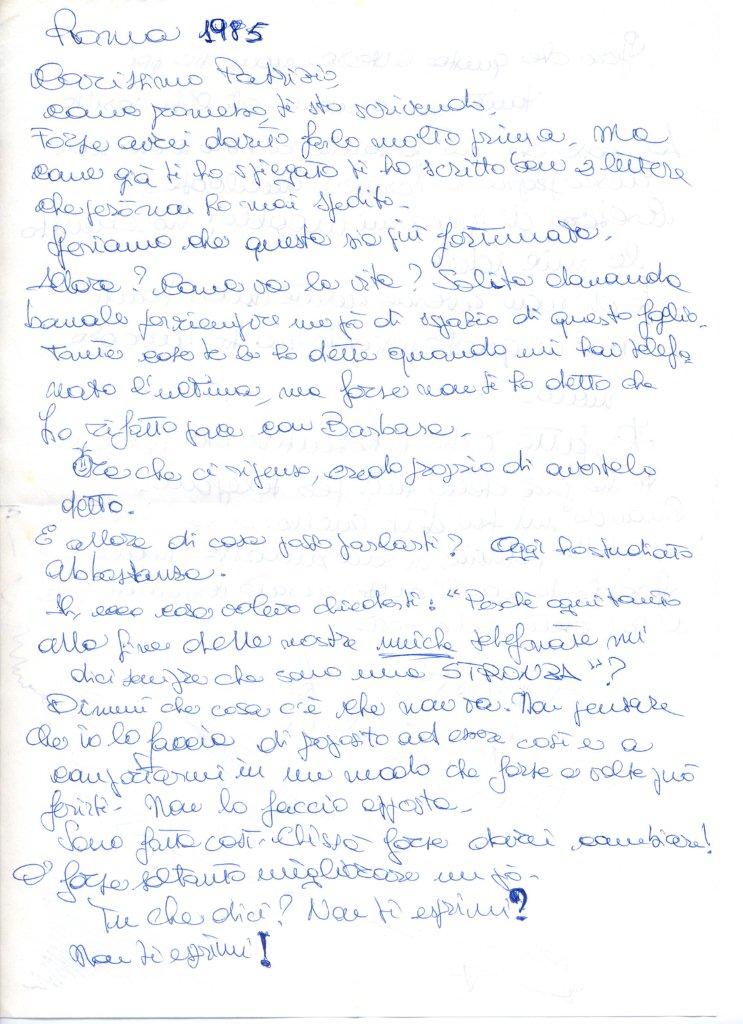 Roma 1985
Carissimo Patrizio,
come promesso, ti sto scrivendo.
Forse avrei dovuto farlo molto prima. Ma
come già ti ho spiegato ti ho scritto ben 3 lettere
che però non ho mai spedito.
Speriamo che questa sia più fortunata.
Allora? Come va la vita? Solita domanda
banale per riempire un pò di spazio di questo foglio.
Tante cose te le ho dette quando mi hai telefo
nato l'ultima, ma forse non ti ho detto che
ho rifatto pace con Barbara.
Ora che ci ripenso, credo proprio di avertelo
detto.
E allora di cosa posso parlarti? Oggi ho studiato
abbastanza.
Ah, ecco cosa volevo chiederti: "Perché ogni tanto
alla fine delle nostre uniche telefonate mi
dici sempre che sono una STRONZA"?
Dimmi che cosa c'è che non va. Non pensare
che io lo faccia di proposito ad essere così e a
comportarmi in un modo che forse a volte può
ferirti. Non lo faccio apposta.
Sono fatta così. Chissà forse dovrei cambiare!
O forse soltanto migliorare un pò.
Tu che dici? Non ti esprimi?
Non ti esprimi!